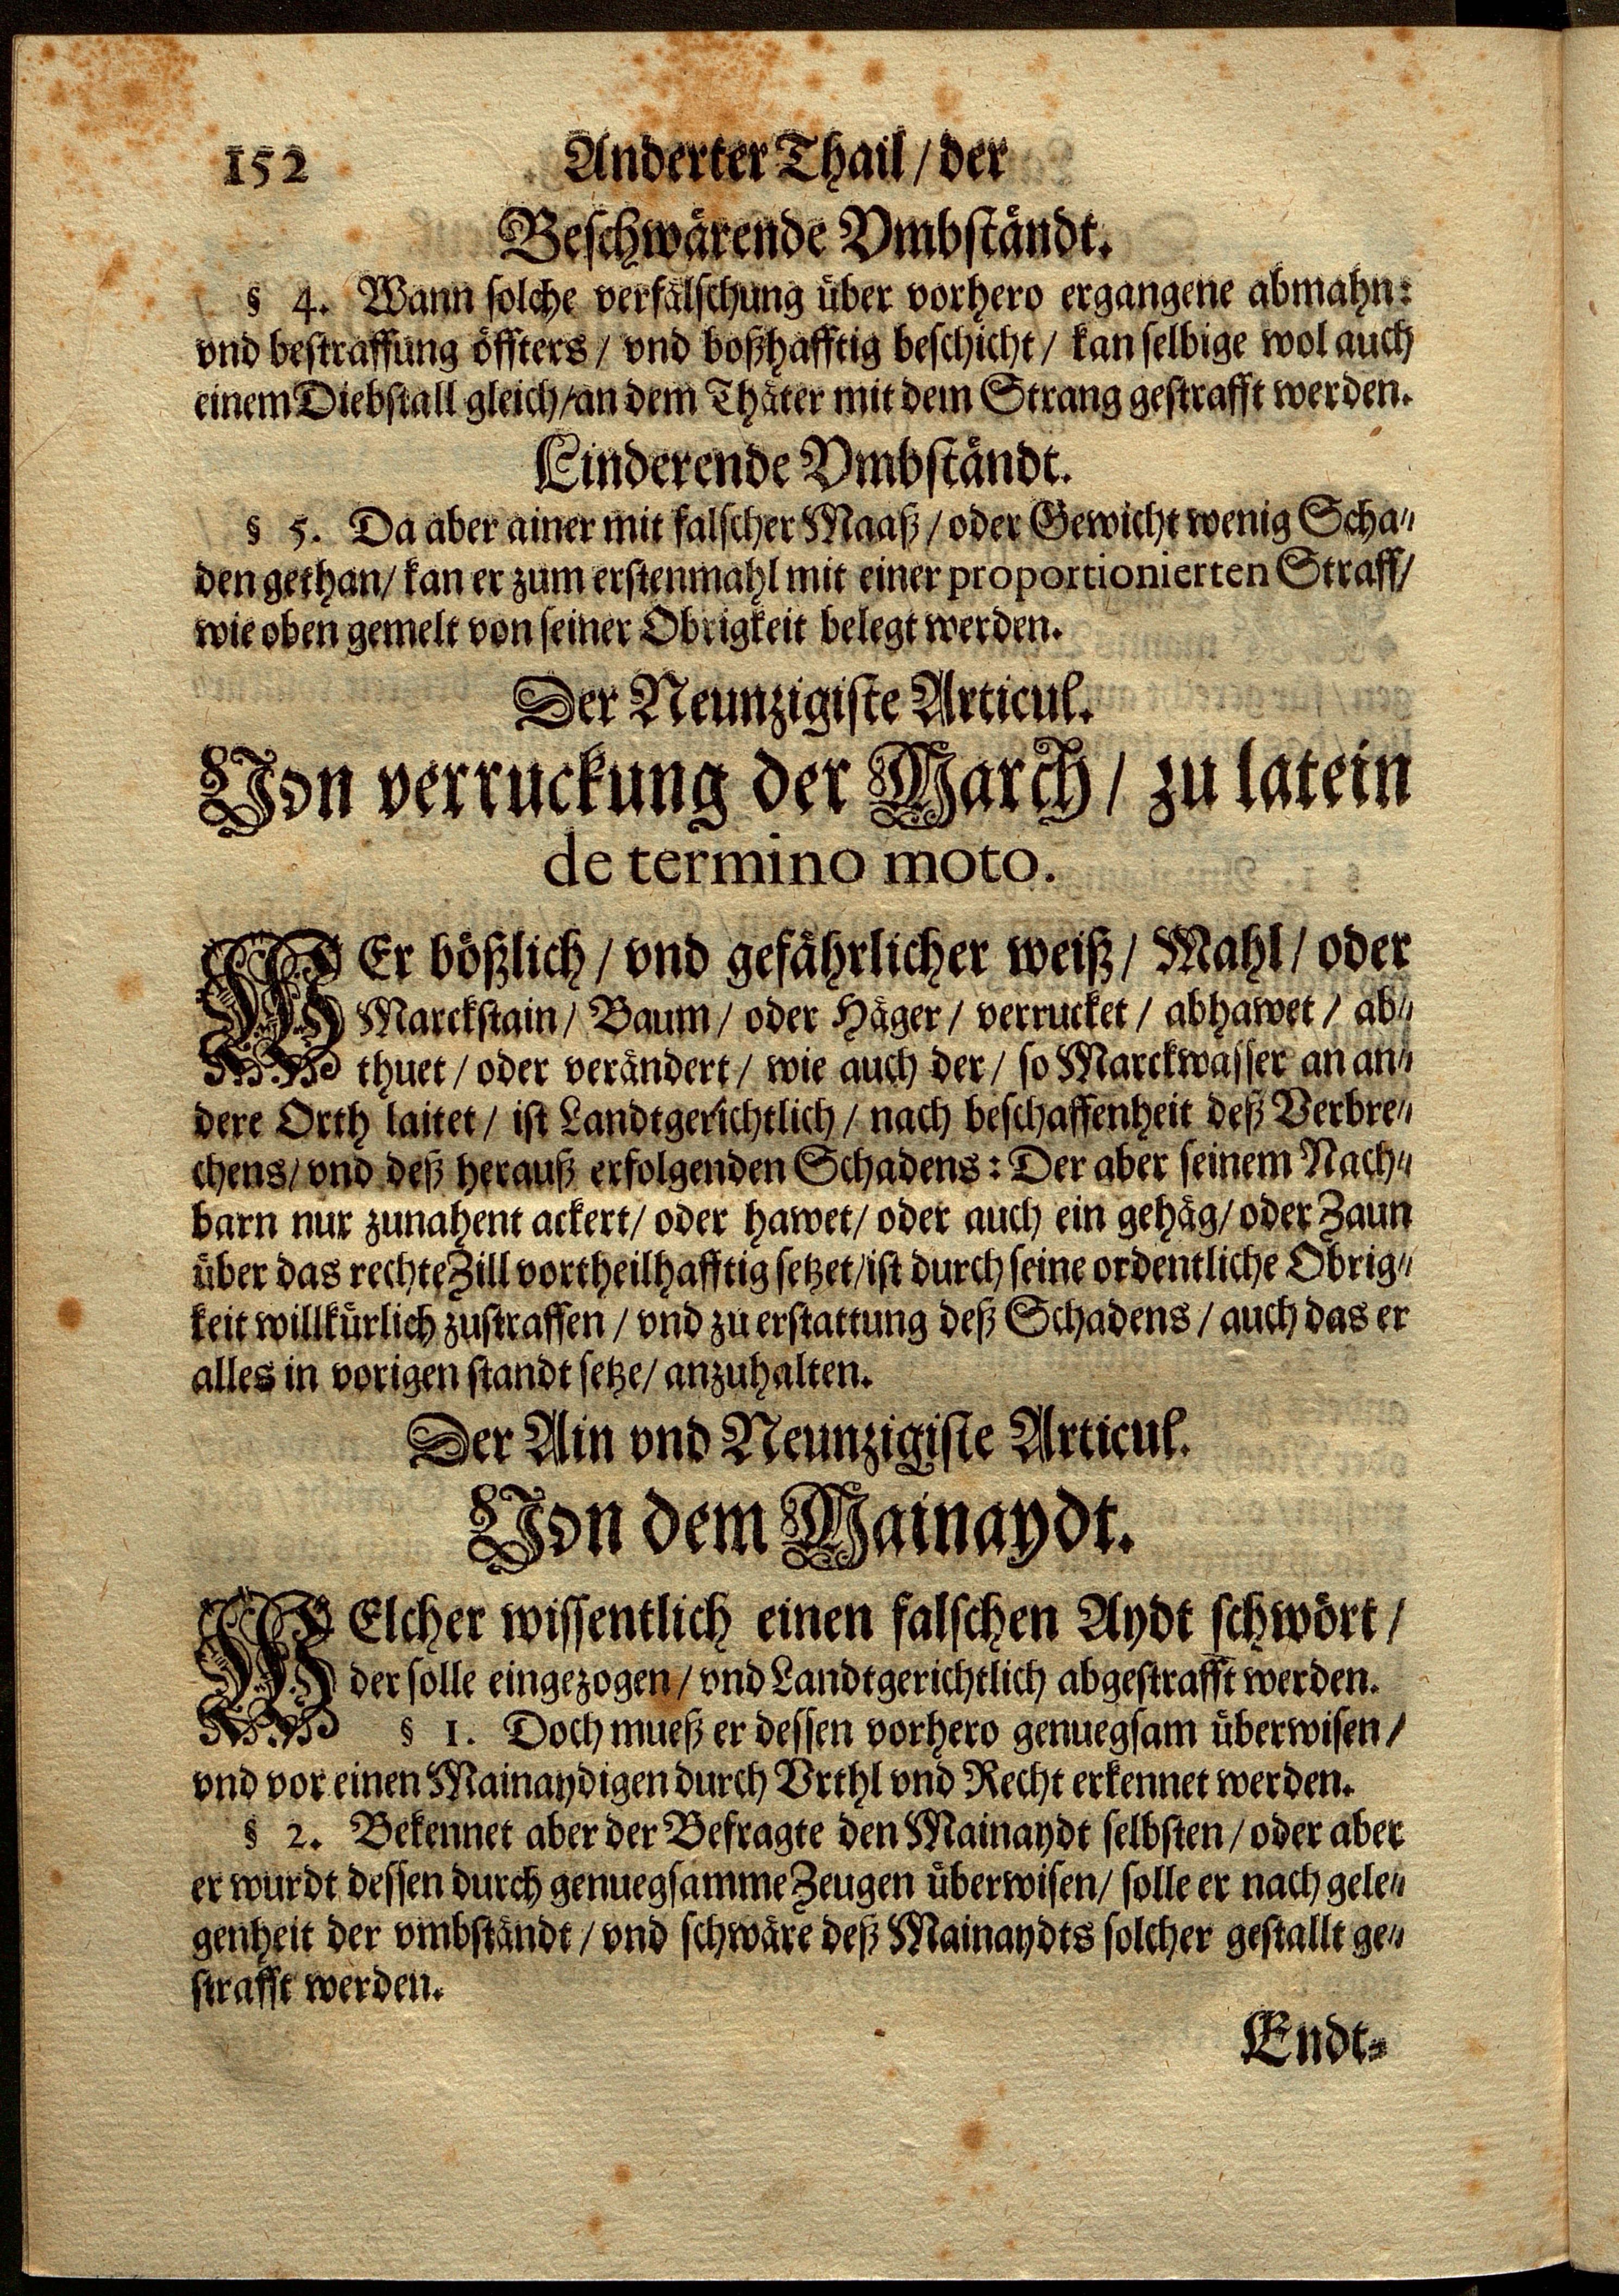 152 Anderter Thail / der
Beschwärende Vmbständt.
§ 4. Wann solche verfälschung über vorhero ergangene abmahn:
vnd bestraffung öffters / vnd boßhafftig beschicht / kan selbige wol auch
einem Diebstall gleich / an dem Thäter mit dem Strang gestrafft werden.
Linderende Vmbständt.
§ 5. Da aber ainer mit falscher Maaß / oder Gewicht wenig Scha⸗
den gethan / kan er zum erstenmahl mit einer proportionierten Straff /
wie oben gemelt von seiner Obrigkeit belegt werden.
Der Neunzigiste Articul.
Von verruckung der March / zu latein
de termino moto.
WEr bößlich / vnd gefährlicher weiß / Mahl / oder
Marckstain / Baum / oder Häger / verrucket / abhawet / ab⸗
thuet / oder verändert / wie auch der / so Marckwasser an an⸗
dere Orth laitet / ist Landtgerichtlich / nach beschaffenheit deß Verbre⸗
chens / vnd deß herauß erfolgenden Schadens: Der aber seinem Nach⸗
barn nur zunahent ackert / oder hawet / oder auch ein gehäg / oder Zaun
über das rechte Zill vortheilhafftig setzet / ist durch seine ordentliche Obrig⸗
keit willkürlich zustraffen / vnd zu erstattung deß Schadens / auch das er
alles in vorigen standt setze / anzuhalten.
Der Ain vnd Neunzigiste Articul.
Von dem Mainaydt.
WElcher wissentlich einen falschen Aydt schwört /
der solle eingezogen / vnd Landtgerichtlich abgestrafft werden.
§ 1. Doch mueß er dessen vorhero genuegsam überwisen /
vnd vor einen Mainaydigen durch Vrthl vnd Recht erkennet werden.
§ 2. Bekennet aber der Befragte den Mainaydt selbsten / oder aber
er wurdt dessen durch genuegsamme Zeugen überwisen / solle er nach gele⸗
genheit der vmbständt / vnd schwäre deß Mainaydts solcher gestallt ge⸗
strafft werden.
Endt⸗